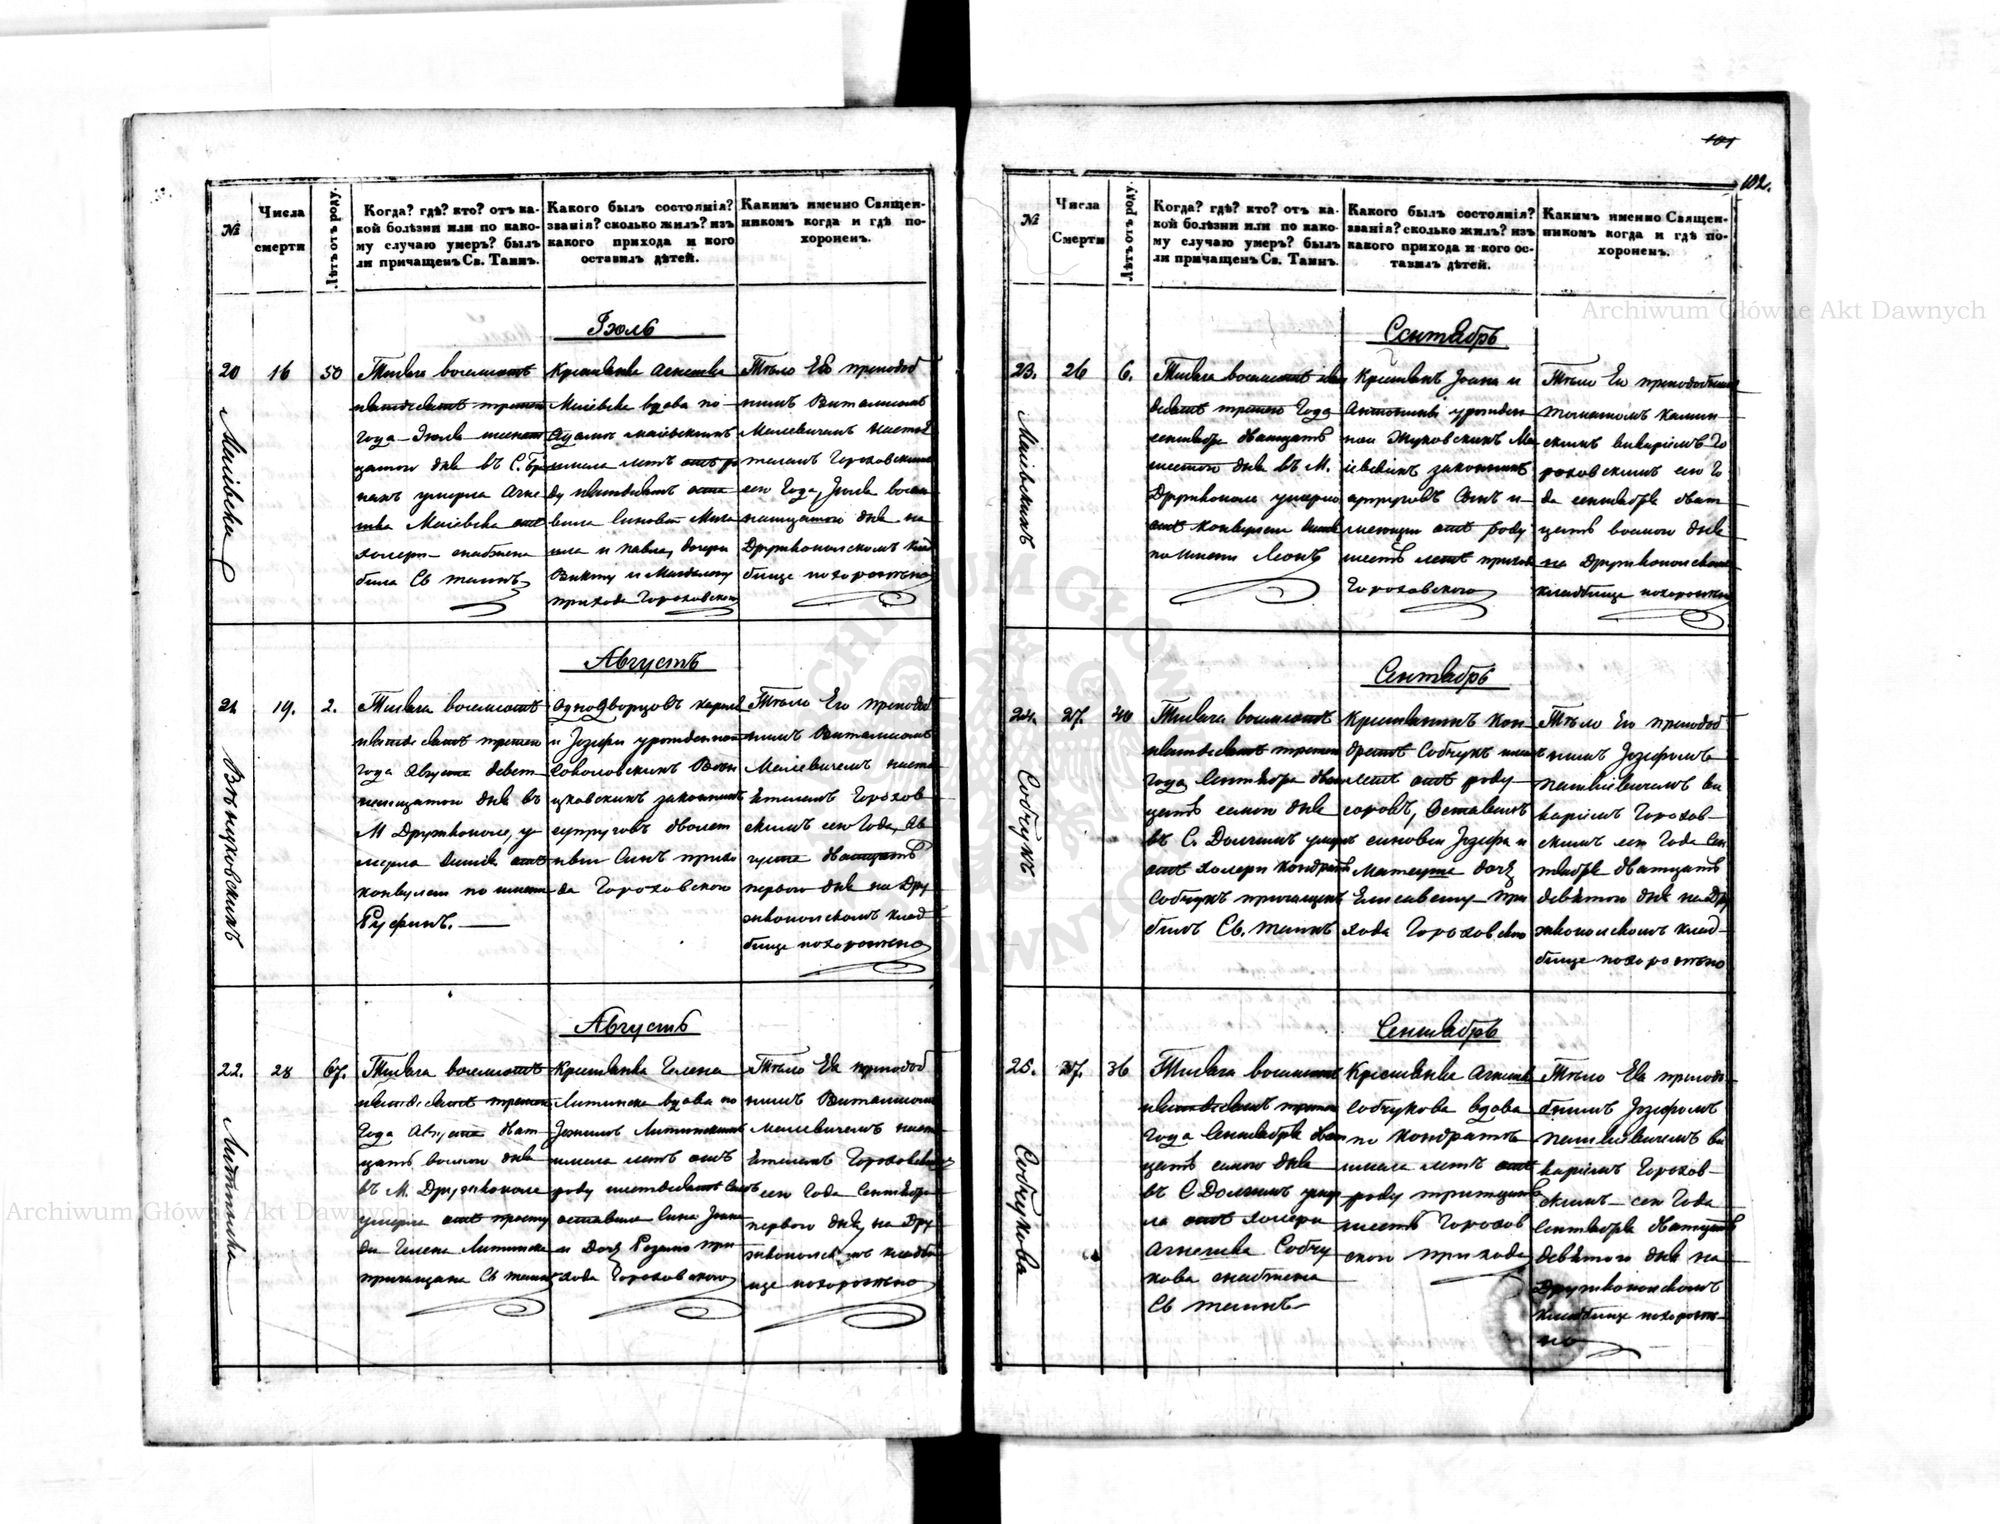 101
102.
№
Числа
смерти
Лѣтъ отъ роду.
Когда? гдѣ? кто? отъ ка-
кой болѣзни или по како-
му случаю умеръ? былъ
ли причащенъ Св. Таинъ.
Какого былъ состоянія?
званія? сколько жилъ? изъ
какого прихода и кого
оставилъ дѣтей.
Какимъ именно Священ-
никомъ когда и гдѣ по-
хороненъ.
Іюль
20
16
50
Маіевска
Тысяча восемсотъ
пятдесятъ третьего
года Іюля шестнат
цатого дня въ С.
умерла Агне
шка Маіевска отъ
холеры снабжена
была Св таинъ
Крестьянка Агнешка
Маіевска вдова по
Адамѣ Маіевскимъ
имѣла летъ отъ ро
ду пятдесятъ оста
вила синовей Миха
ила и Павла, дочери
Викту и Магдалену
прихода Гороховского
Тѣло Ея преподоб
нимъ Виталисомъ
Малевичемъ настоя
телемъ Гороховскимъ
сего Года Іюля восем
натцатого дня на
Дружкопольскомъ клад
бище похоронено
Августъ
21
19.
2.
Вѣнцковскихъ
Тысяча восемсотъ
пятдесятъ третьего
года Августа девят
натцатого дня въ
М Дружкополе, у
мерла отъ
конвулсіи по имени
Руфинъ.
Однодворцовъ Кароля
и Іозефи урожденной
Соколовскихъ Вѣн
цковскихъ законныхъ
супруговъ дволет
ный Синъ прихо
да Гороховского
Тѣло Его преподоб
нимъ Виталисомъ
Малевичемъ насто
ятелемъ Горохов
скимъ сего Года, Ав
густа двадцать
первого дня на Дру
жкопольскомъ клад
бище похоронено
Августъ
22.
28
67.
Литинска
Тысяча восемсотъ
пятдесятъ третьего
Года Августа двад
цать восмого дня
въ М. Дружкополе
умерла отъ просту
ди Гелена Литинска
причащена Св таинъ
Крестьянка Гелена
Литинска вдова по
Литинскимъ
имѣла летъ отъ
роду шестдесятъ семъ
оставила Сина
и Дочь Розалію при
хода Гороховского
Тѣло Ея преподоб
нимъ Виталисомъ
Малевичемъ насто
ятелемъ Гороховскимъ
сего Года Сентября
первого дня, на Дру
жкопольскомъ кладби
ще похоронено
№
Числа
Смерти
Лѣтъ отъ роду.
Когда? гдѣ? кто? отъ ка-
кой болѣзни или по како-
му случаю умеръ? былъ
ли причащенъ Св. Таинъ.
Какого былъ состоянія?
званія? сколько жилъ? изъ
какого прихода и кого ос-
тавилъ дѣтей.
Какимъ именно Священ-
никомъ когда и гдѣ по-
хороненъ.
Сентябрь
23.
26
6.
Маіевскихъ
Тысяча восемсотъ пят
десятъ третего Года
сентября двадцать
шестого дня въ М.
Дружкополе умерло
отъ конвулсіи дитя
по имени Леонъ
Крестьянъ Іоана и
Антонины урожден
ной Жуковскихъ Ма
іевскихъ законныхъ
супруговъ Синъ и
меющій отъ роду
шесть летъ прихода
Гороховского
Тѣло Его преподобнимъ
Томашомъ Камин
скимъ викаріемъ Го
роховскимъ сего Го
да сентября двад
цать восмого дня
на Дружкопольскомъ
кладбище похоронено
Сентябрь
24.
27.
40
Собчукъ
Тысяча восемсотъ
пятдесятъ третего
года Сентября двад
цать семого дня
въ С. Долгимъ умеръ
отъ холери Кондратъ
Собчукъ причащенъ
билъ Св. таинъ
Крестьянинъ Кон
дратъ Собчукъ имѣлъ
летъ отъ роду
сорокъ, Оставилъ
синовей Іозефа и
Матеуша дочь
Елисавету при
хода Гороховского
Тѣло Его преподоб
нимъ Іозефомъ
Пашкевичемъ ви
каріемъ Горохов-
скимъ сего Года Сен
тября двадцать
девятого дня на Дру
жкопольскомъ клад-
бище похоронено
Сентябрь
25.
27.
36
Собчукова
Тысяча восемсотъ
пятдесятъ третего
года Сентября двад
цать семого дня
въ С Долгимъ умер
ла отъ холери
Агнешка Собчу
кова снабжена
Св таинъ
Крестьянка Агнешка
Собчукова вдова
по Кондратѣ
имѣла летъ отъ
роду тритцать
шесть Горохов
ского прихода
Тѣло Ея преподо-
бнимъ Іозефомъ
Пашкевичемъ ви
каріемъ Горохов-
скимъ сего Года
Сентября двадцать
девятого дня на
Дружкопольскомъ
кладбище похороне-
но
Archiwum Główne Akt Dawnych
Archiwum Główne Akt Dawnych
ARCHIWUM GŁÓWNE AKT DAWNYCH